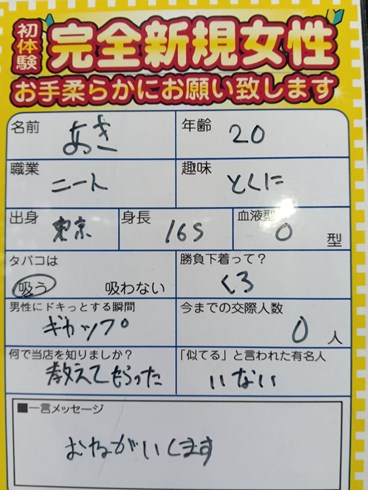 初体験 完全新規女性
お手柔らかにお願い致します
名前 あき 年齢 20
職業 ニート 趣味 とくに
出身 東京 身長 165 血液型 O 型
タバコは 勝負下着って?
吸う 吸わない くろ
男性にドキっとする瞬間 今までの交際人数
ギャップ 0 人
何で当店を知りましたか? 「似てる」と言われた有名人
教えてもらった いない
■一言メッセージ
おねがいします